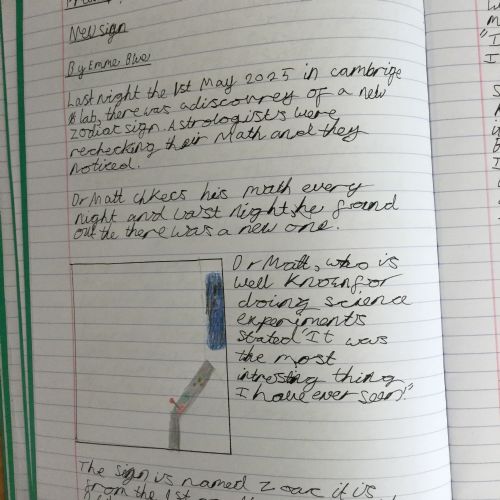 New sign
By Emme Blue
Last night the 1st May 2025 in cambrige
lab, there was a discovrey of a new
zodiac sign. Astrologists were
rechecking their Math and they
noticed.
Dr Matt chkecs his math every
night and last night, he found
out the there was a new one.
Dr Matt, who is
well known for
doing science
experiments
stated "It was
the most
intresting thing
I have ever seen."
The sign is named Zoar it is
from the 1st